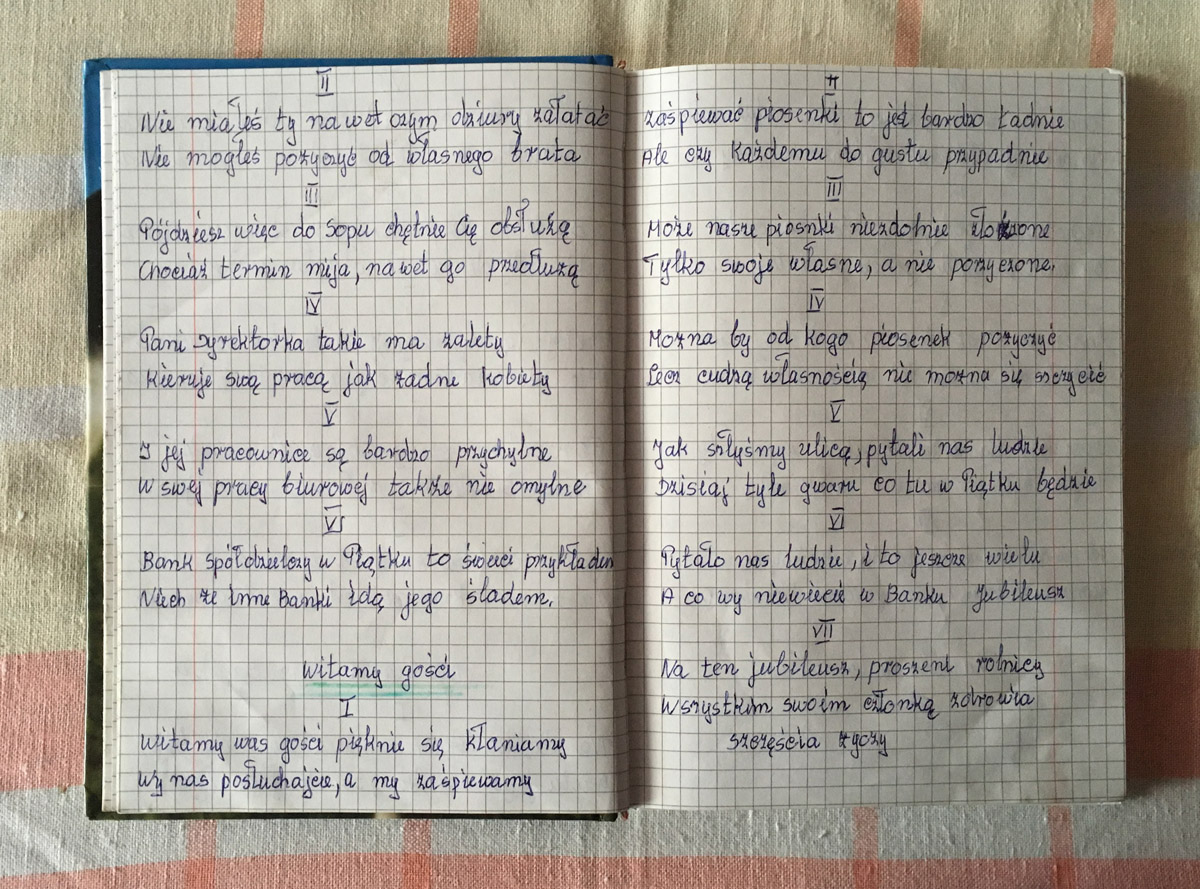 II
Nie miałeś ty nawet czym dziury załatać
Nie mogłeś pożyczyć od własnego brata
III
Pójdziesz więc do Sopu chętnie Cię obsłużą
Chociaż termin mija, nawet go przedłużą
IV
Pani Dyrektorka takie ma zalety
Kieruje swą pracą jak żadne kobiety
V
I jej pracownice są bardzo przychylne
W swej pracy biurowej także nie omylne
VI
Bank spółdzielczy w Piątku to świeci przykładem
Niech że inne Banki idą jego śladem.
Witamy gości
I
Witamy was goście pięknie się kłaniamy
Wy nas posłuchajcie, a my zaśpiewamy
II
Zaśpiewać piosenki to jest bardzo ładnie
Ale czy każdemu do gustu przypadnie
III
Może nasze piosnki niezdolnie złożone
Tylko swoje własne, a nie pożyczone.
IV
Można by od kogo piosenek pożyczyć
Lecz cudzą własnością nie można się szczycić
V
Jak szłyśmy ulicą, pytali nas ludzie
Dzisiaj tyle gwaru co tu w Piątku będzie
VI
Pytało nas ludzie, i to jeszcze wielu
A co wy niewiecie w Banku Jubileusz
VII
Na ten jubileusz, proszeni rolnicy
Wszystkim swoim członką zdrowia
szczęścia życzy